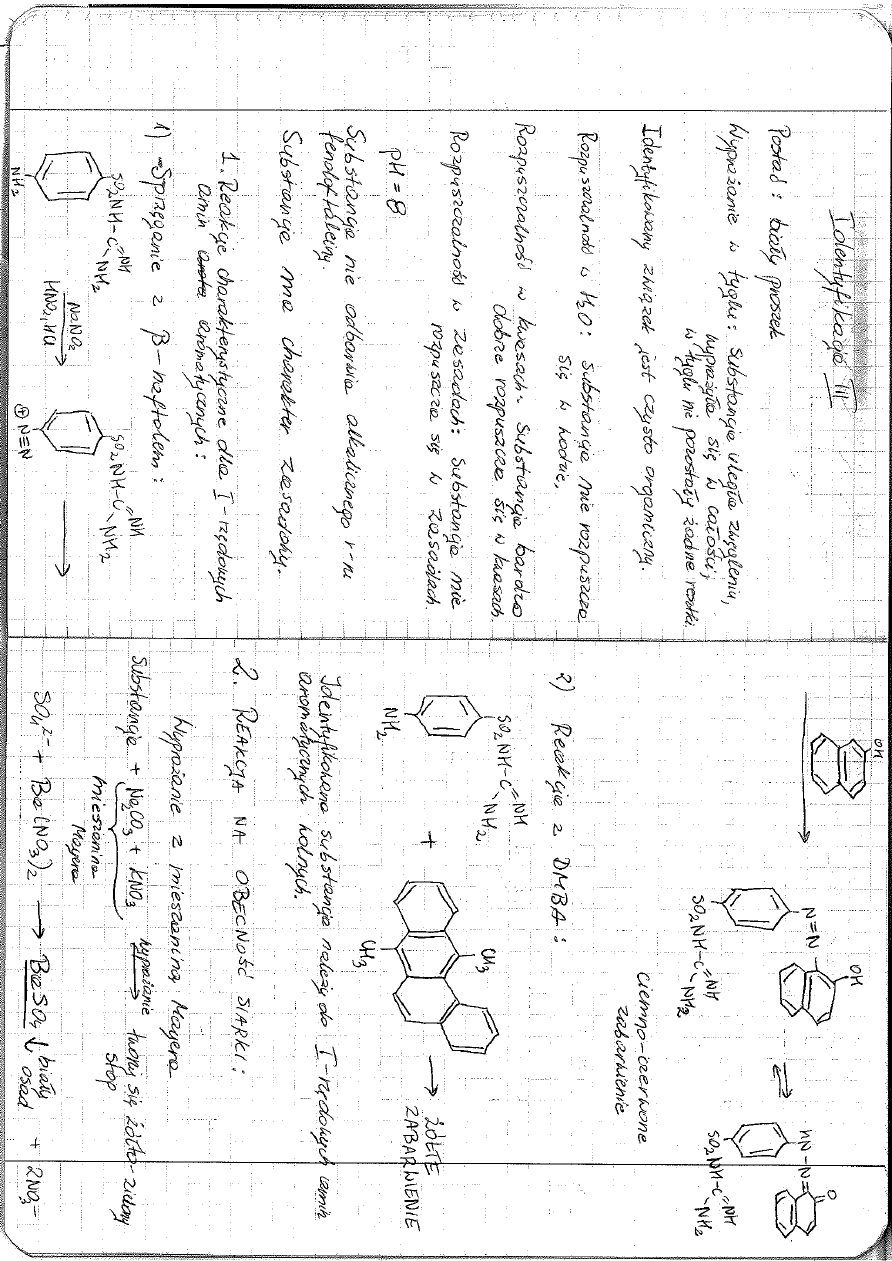 Identyfikacja III
Postać: biały proszek
Wyprażanie w tyglu: Substancja uległa zwęgleniu,
wyprażyła się w całości,
w tyglu nie pozostały żadne resztki.
Identyfikowany związek jest czysto organiczny.
Rozpuszczalność w H2O: substancja nie rozpuszcza
się w wodzie.
Rozpuszczalność w kwasach: Substancja bardzo
dobrze rozpuszcza się w kwasach
Rozpuszczalność w zasadach: Substancja nie
rozpuszcza się w zasadach.
pH = 8
Substancja nie odbarwia alkalicznego r-ru
fenoloftaleiny.
Substancja ma charakter zasadowy.
1. Reakcje charakterystyczne dla I-rzędowych
amin aromatycznych:
1) Sprzęganie z β-naftolem:
SO2NH-C=NH
NH2
NH2
NaNO2
HNO2, HCl
SO2NH-C=NH
NH2
⊕N≡N
OH
OH
N=N
SO2NH-C=NH
NH2
⇌
O
HN-N=
SO2NH-C=NH
NH2
ciemno-czerwone
zabarwienie
2) Reakcja z DMBA:
SO2NH-C=NH
NH2
NH2
+
CH3
CH3
→ ŻÓŁTE
ZABARWIENIE
Identyfikowana substancja należy do I-rzędowych amin
aromatycznych wolnych.
2. REAKCJA NA OBECNOŚĆ SIARKI:
Wyprażanie z mieszaniną Mayera
Substancja + Na2CO3 + KNO3 wyprażanie → tworzy się żółto-zielony
stop
mieszanina
Mayera
SO4²⁻ + Ba(NO3)2 → BaSO4 ↓ biały
osad + 2NO3⁻